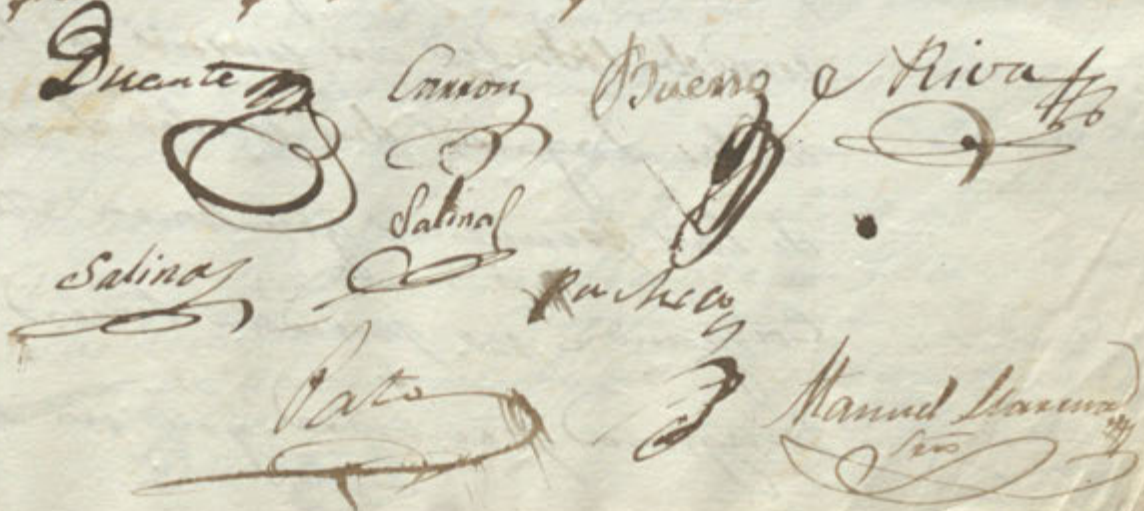 Duante Carron Bueno Riva
Salinas
Salinas
Pacheco
Pato
Manuel Llarena
Srio